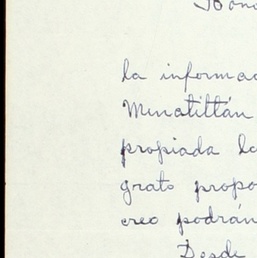 la informac
Minatitlán
propiada la
grato propo
creo podrán
Desde